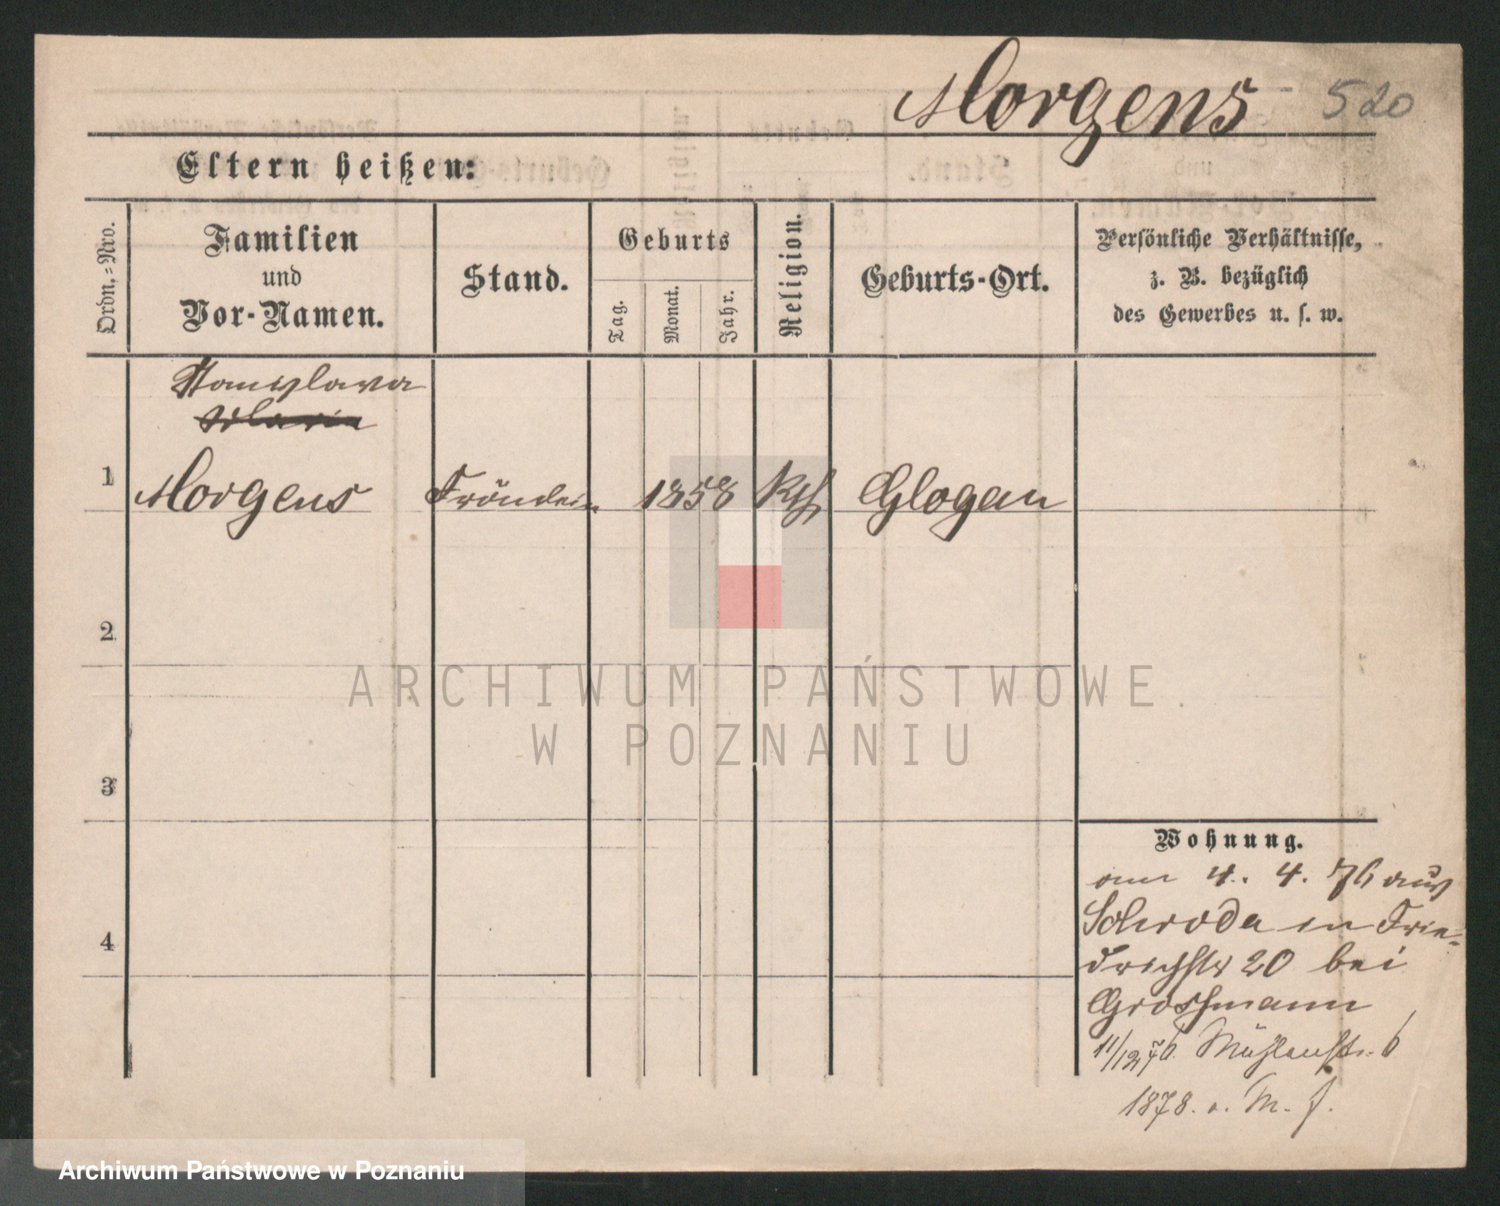 Morgens 520
Eltern heißen:
Ordn.=Nro.
Familien
und
Vor-Namen.
Stand.
Geburts
Tag.
Monat.
Jahr.
Religion.
Geburts-Ort.
Persönliche Verhältnisse,
z. B. bezüglich
des Gewerbes u. s. w.
Stanislawa
Maria
1 Morgens Fräulein 1858 Kth Glogau
2
3
4
Wohnung.
am 4. 4. 76 aus
Schroda in Frie-
drichstr 20 bei
Grossmann
11/12 76. Mühlenstr. 6
1878. M.
ARCHIWUM PAŃSTWOWE
W POZNANIU
Archiwum Państwowe w Poznaniu